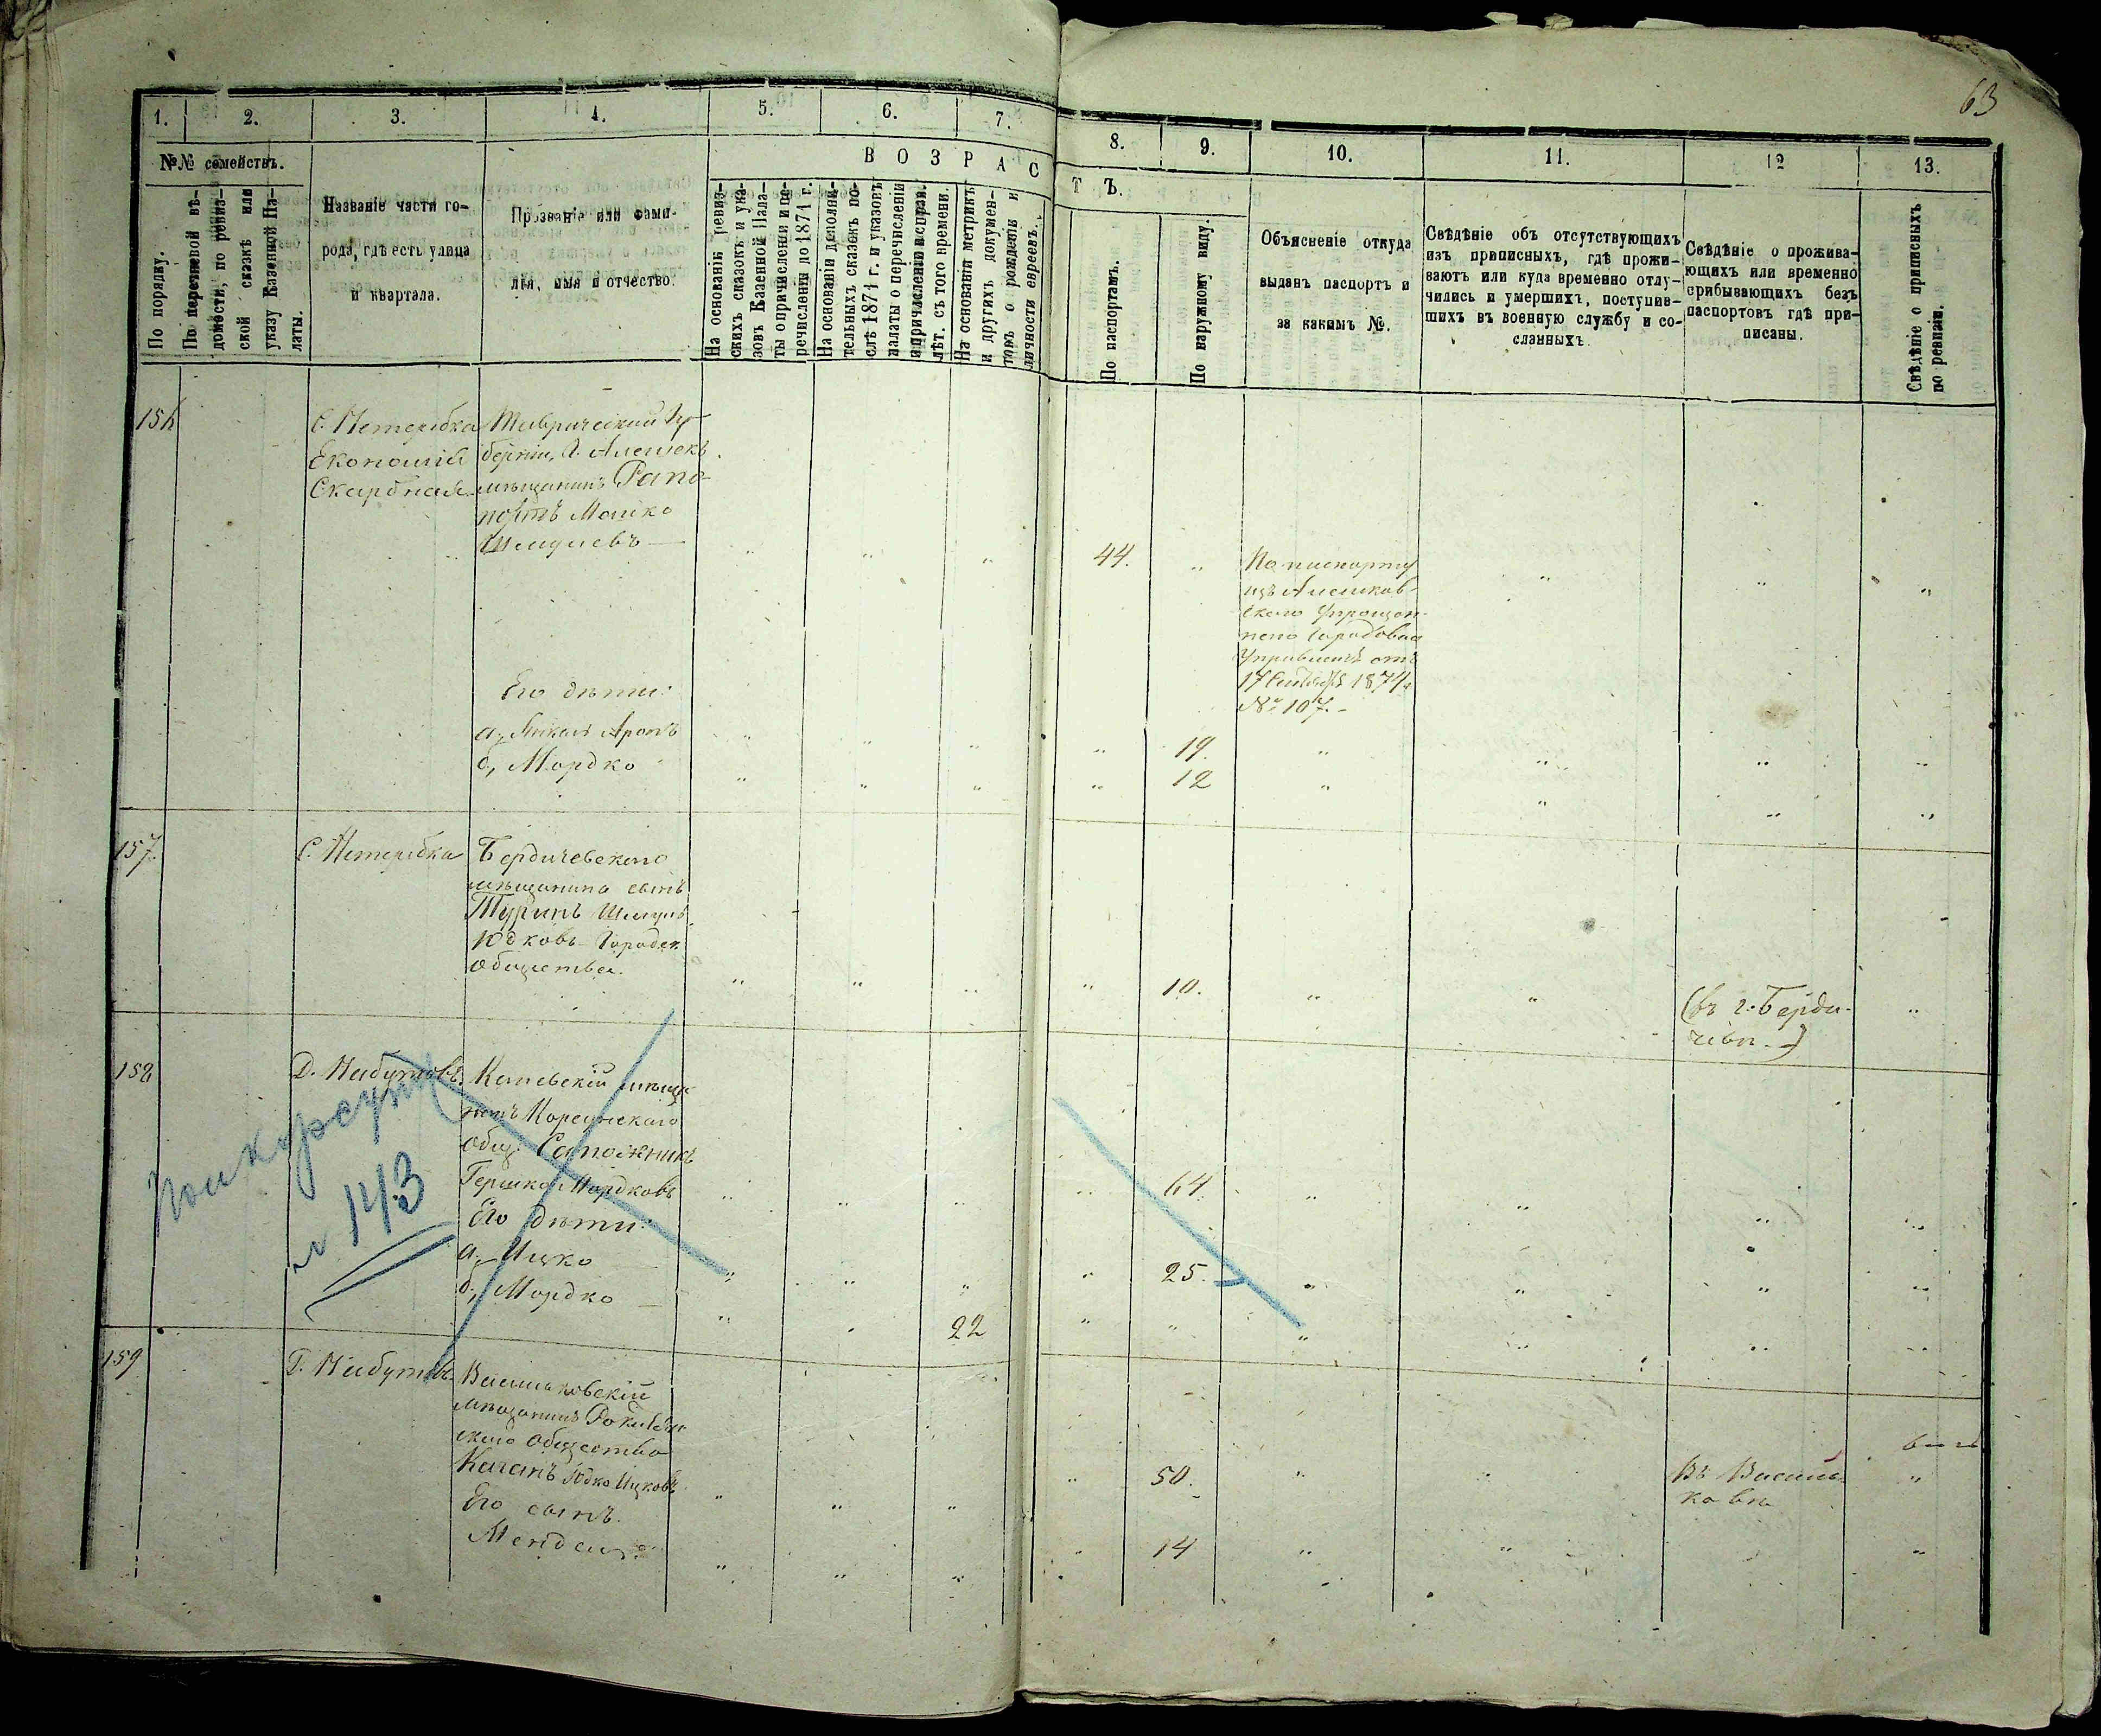 63
1. 2. 3. 4. 5. 6. 7. 8. 9. 10. 11. 12 13.
№№ семействъ.
В О З Р А С Т Ъ.
По порядку.
По перечневой вѣ-
домости, по ревиз-
ской сказкѣ или
указу Казенной Па-
латы.
Названіе части го-
рода, гдѣ есть улица
и квартала.
Прозваніе или фами-
лія, имя и отчество.
На основаніи ревиз-
скихъ сказокъ и ука-
зовъ Казенной Пала-
ты о причисленіи и пе-
речисленіи до 1871 г.
На основаніи дополни-
тельныхъ сказокъ по-
слѣ 1871 г. и указовъ
палаты о перечисленіи
и причисленіи и справ.
лѣт. съ того времени.
На основаніи метрикъ
и другихъ докумен-
товъ о рожденіи и
личности евреевъ.
По паспортамъ.
По наружному виду.
Объясненіе откуда
выданъ паспортъ и
за какимъ №.
Свѣдѣніе объ отсутствующихъ
изъ приписныхъ, гдѣ прожи-
ваютъ или куда временно отлу-
чились и умершихъ, поступив-
шихъ въ военную службу и со-
сланныхъ.
Свѣдѣніе о прожива-
ющихъ или временно
прибывающихъ безъ
паспортовъ гдѣ при-
писаны.
Свѣдѣніе о приписныхъ
по ревизіи.
С. Нетеребка
Економія
Скарбная
Таврической Гу-
берніи, Г. Алешекъ
мѣщанинъ Рапо-
портъ Мошко
Шмулевъ
44.
По паспорту
изъ Алешков-
скаго Упрощен-
наго Городоваго
Управленія отъ
17 1874 г.
№ 107.
Его дѣти:
а, Аронъ
19.
б, Мордко
12
157.
С. Нетеребка
Бердичевскаго
мѣщанина сынъ
Шмуль
Юдковъ Городск.
общества.
10.
(въ г. Берди-
чевѣ.)
158
Д. Набутовъ.
Каневскій мѣща-
нинъ Корсунскаго
общ. Сапожникъ
Гершко Мордковъ
64.
№ 143
Его дѣти:
а, Ицко
25.
б, Мордко
22
159
Д. Набутовъ.
Васильковскій
мѣщанинъ
скаго Общества
Каганъ Юдко Ицковъ
50.
Въ Василь-
ковѣ
Его сынъ.
Мендель
14